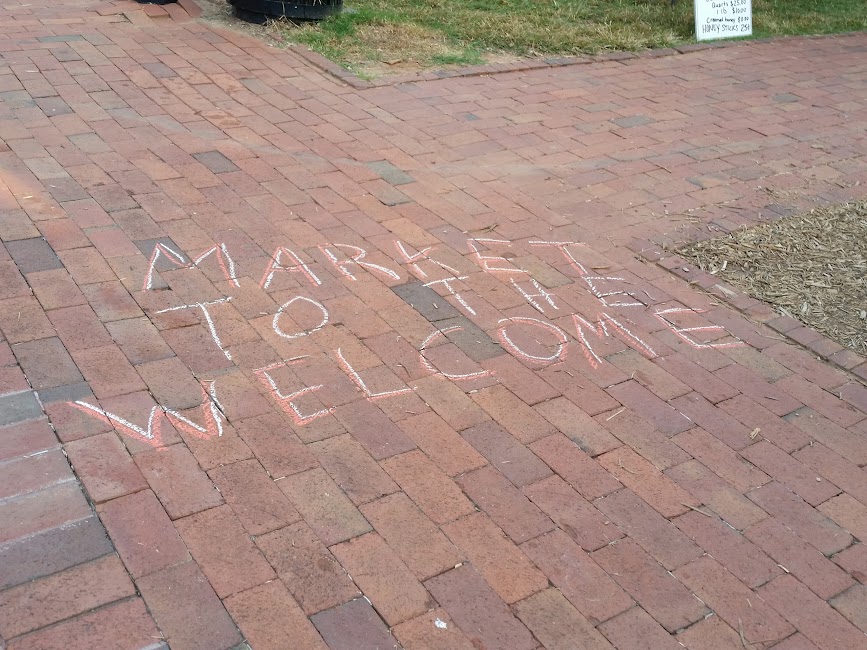 Quarts $25.00
1 lb $10.00
Creamed honey
HONEY STICKS 25¢
MARKET
TO THE
WELCOME